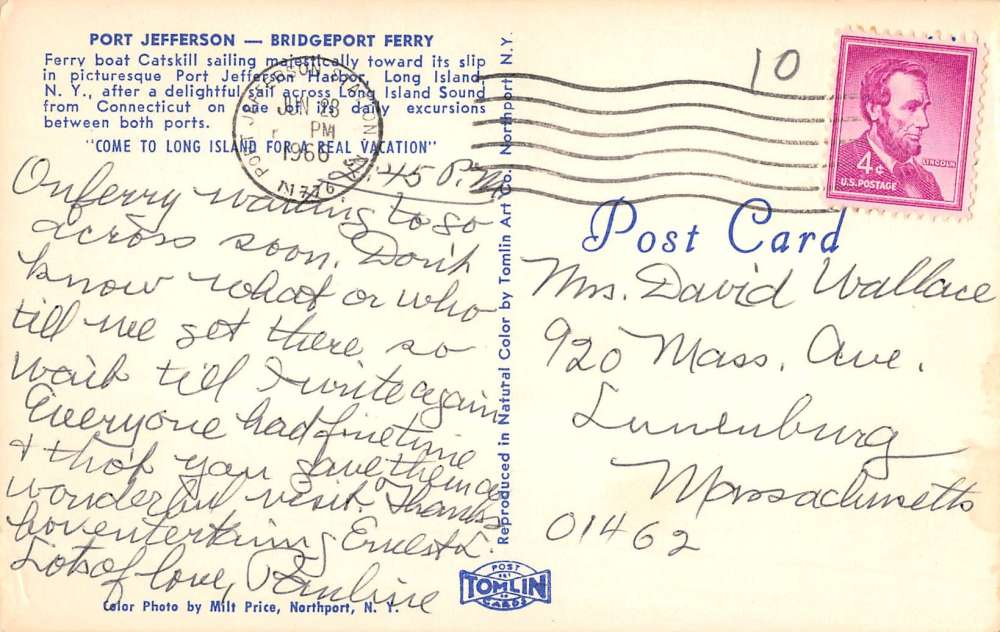 PORT JEFFERSON — BRIDGEPORT FERRY
Ferry boat Catskill sailing majestically toward its slip
in picturesque Port Jefferson Harbor, Long Island,
N. Y., after a delightful sail across Long Island Sound
from Connecticut on one of its daily excursions
between both ports.
"COME TO LONG ISLAND FOR A REAL VACATION"
PORT JEFFERSON STATION N.Y.
JUN 28
PM
1966
11776
45 P.M.
On ferry waiting to go
across soon. Don't
know what or who
till we get there, so
wait till I write again
Everyone had fine time
& thot you gave them a
wonderful visit. Thanks
for entertaining Ernest
Lots of love, Pauline
Color Photo by Milt Price, Northport, N. Y.
Reproduced in Natural Color by Tomlin Art Co. Northport, N. Y.
POST
TOMLIN
CARDS
10
4¢
LINCOLN
U.S. POSTAGE
Post Card
Mrs. David Wallace
920 Mass. Ave.
Lunenburg
Massachusetts
01462